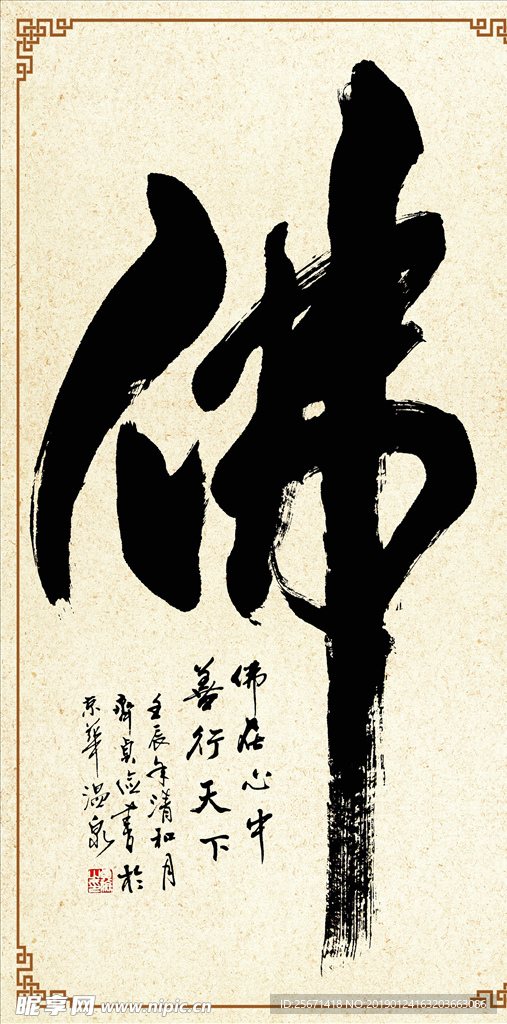 佛
佛在心中
善行天下
壬辰年清和月
齐贞俭书於
京华温泉
昵享网 www.nipic.cn
ID:25671418 NO:20190124163203663086